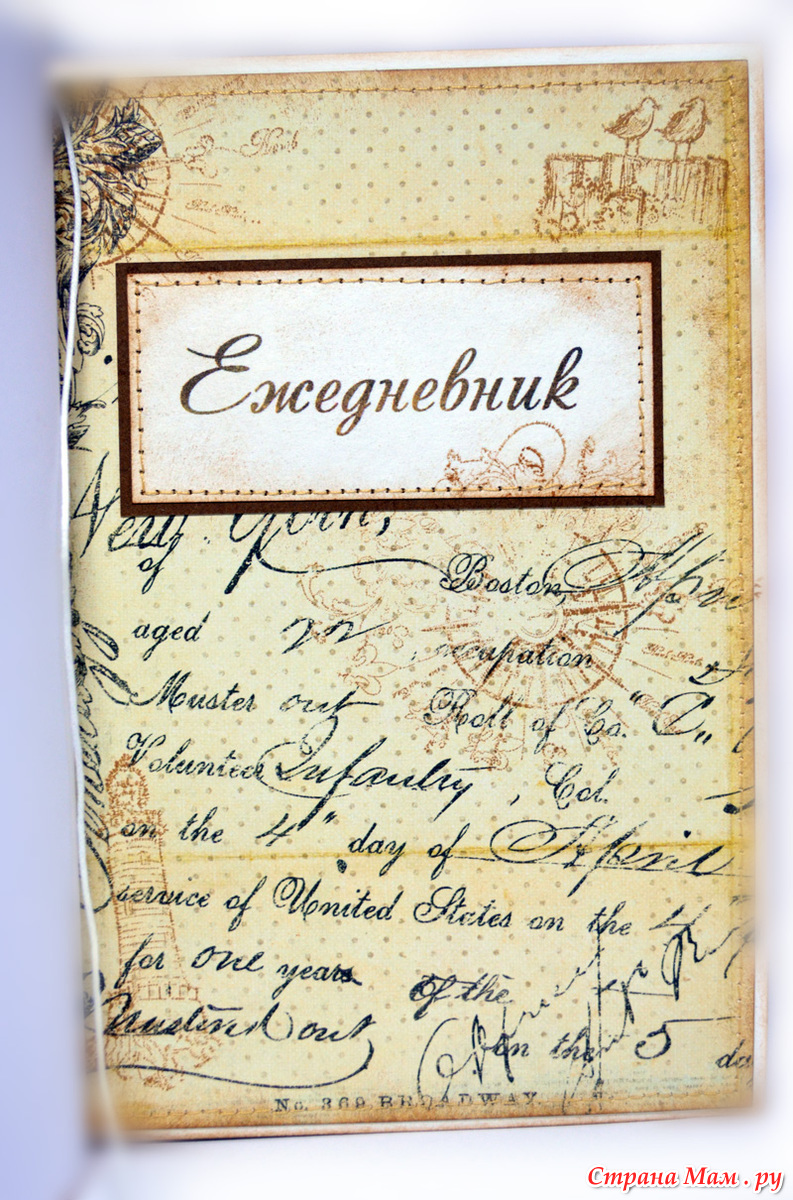 Ежедневник
of Boston,
aged 22 occupation
Muster out Roll of Co. "C"
Volunteer Infantry, Col.
on the 4" day of April
service of United States on the 4
for one years of the
Mustered out on the 5 da
No. 369 BROADWAY.
Страна Мам . ру